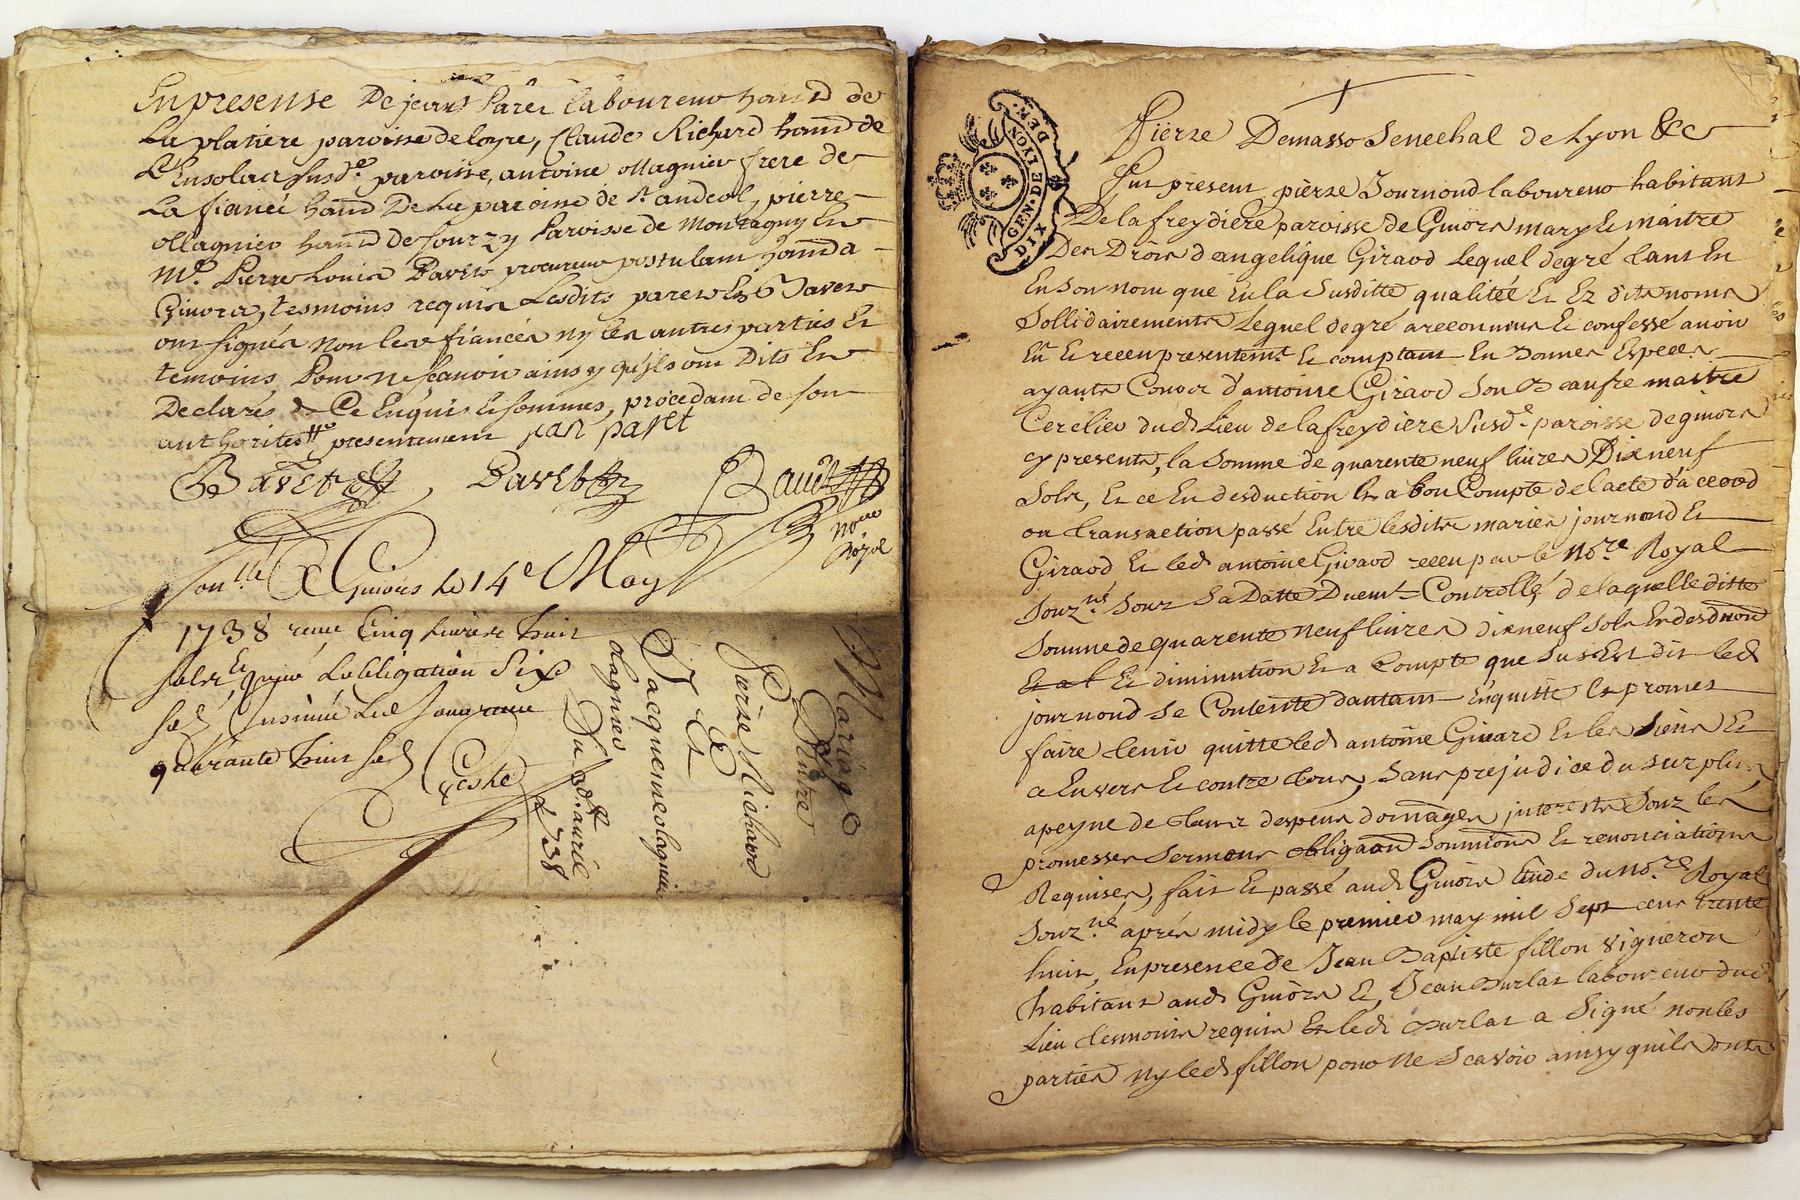 En presense De jean Parer laboureur haband de
La platiere paroisse de loyre, Claude Richard haband de
susd.e paroisse, antoine Magnier frere de
La fiancée haband De La paroisse de St andeol, pierre
Magnier haband de sourzy Paroisse de Montagny Et
M.e Pierre Louis Bavet procureur postulant haband a
Givors, tesmoins requis Lesdits parer et Bavet
ont signés non les fiancés ny les autres parties Et
temoins Pour ne scavoir ainsy qu'ils ont Dits Et
Declarés De Ce Enquis Et sommes, procedant de son
authorité presentement jan paret
Bavet Bavet Bavet
no.re
Royal
Con.lle A Givors le 14e May
1738 receu Cinq livres huit
sols Et pour L'obligation Six
sols Insinué Led jour receu
quarante huit sols
Coste
Mariage
D'Entre
Pierre Richard
Et
Jacquemeolagnier
Magnier
Du 2d.e avril
1738
GEN. DE LYON
DIX DEN.
Pierre Demasso Senechal de Lyon &c
Fut present pierre Journoud laboureur habitant
De la freydiere paroisse de Givors mary Et maitre
Des Drois d'angelique Giraod Lequel degré tant En
En Son nom que En la Susditte qualiteé Et Ez dits noms
Sollidairements Lequel degré a reconnus Et confessé avoir
Eu Et receu presentemt Et comptant En Bonnes Especes
ayants Cours d'antoine Giraod Son Beaufre maitre
Cerclier dud Lieu de la freydiere Susd.e paroisse de givors
cy presents, la Somme de quarente neuf livres Dix neuf
Sols, Et ce En desduction Et a bon Compte de l'acte d'accord
ou transaction passé Entre lesdits mariés journoud Et
Giraod Et led antoine Giraod receu par le No.re Royal
Souz.né Souz Sa Datte Duemt Controllé, de laquelle ditte
Somme de quarente neuf livres dix neuf sols En desduon
Et a b Et diminution Et a Compte que Sus Est dit led
journoud Se Contente d'autant Enquitte Et promet
faire tenir quitte led antoine Girard Et les Siens Et
a Envers Et contre tous, Sans prejudice du surplus
a peyne de tous despens domages interests Souz les
promesses Serment obligaon Soumions Et renonciations
Requises, fait Et passé aud Givors Etude du no.re Royal
Souz.né aprés midy le premier may mil Sept cent trente
huit, En presence de Jean Baptiste fillon Vigneron
habitant aud Givors Et Jean Burlat laboureur dud
Lieu tesmoins requis Et led Burlat a Signé non les
parties ny led fillon pour ne Scavoir ainsy quils onts